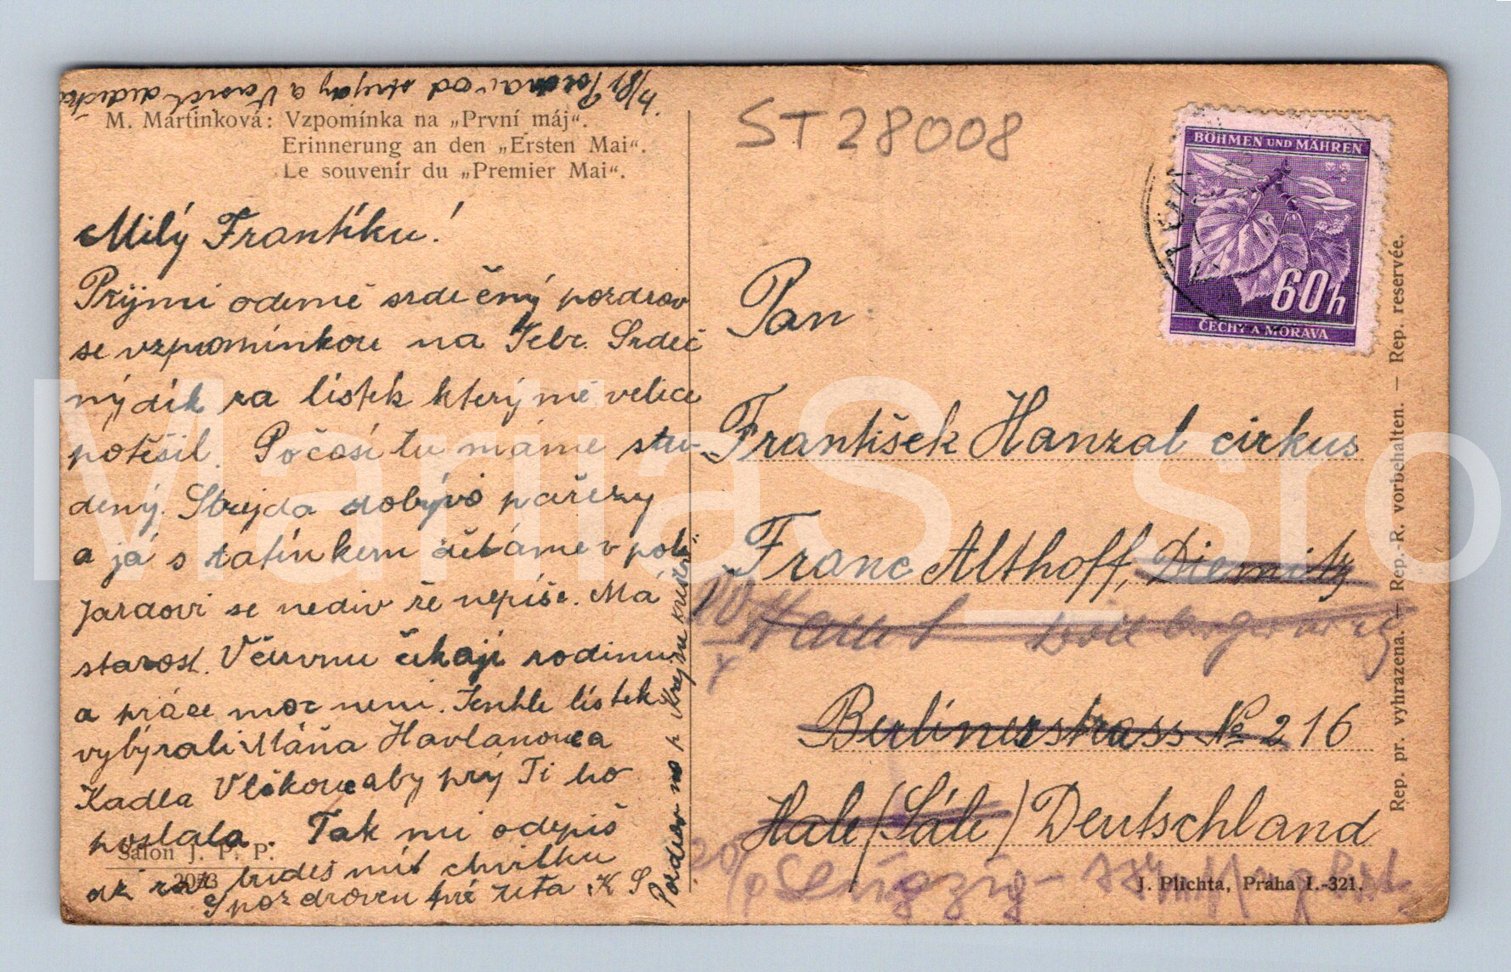 M. Martinková: Vzpomínka na „První máj“.
Erinnerung an den „Ersten Mai“.
Le souvenir du „Premier Mai“.
Milý Frantíku!
Prÿjmi odemě srdečný pozdrav
se vzpomínkou na Tebe. Srdeč
ný dík za lístek který mě velice
potěšil. Počasí tu máme stu-
dený. Strejda dobývá pařezy
a já s tatínkem děláme v poli
Jardovi se nediv že nepíše. Má
starost. V červnu čekají rodinu
a práce moc neni. Tenhle lístek
vybýrali Máňa Havlanova
Kadla Vlčkova aby prý Ti ho
poslala. Tak mi odepiš
až zas budeš mít chvilku
S pozdravem tvé teta K S
Salon J. P. P.
2073
ST 28008
BÖHMEN UND MÄHREN
60h
ČECHY A MORAVA
Pan
František Hanzal cirkus
Franc Althoff, Diemitz
Berlinerstrass № 216
Hale (Sále) Deutschland
Leipzig -
J. Plichta, Praha I.-321.
Rep. pr. vyhrazena. — Rep.-R. vorbehalten. — Rep. reservée.
MariiaS_sro